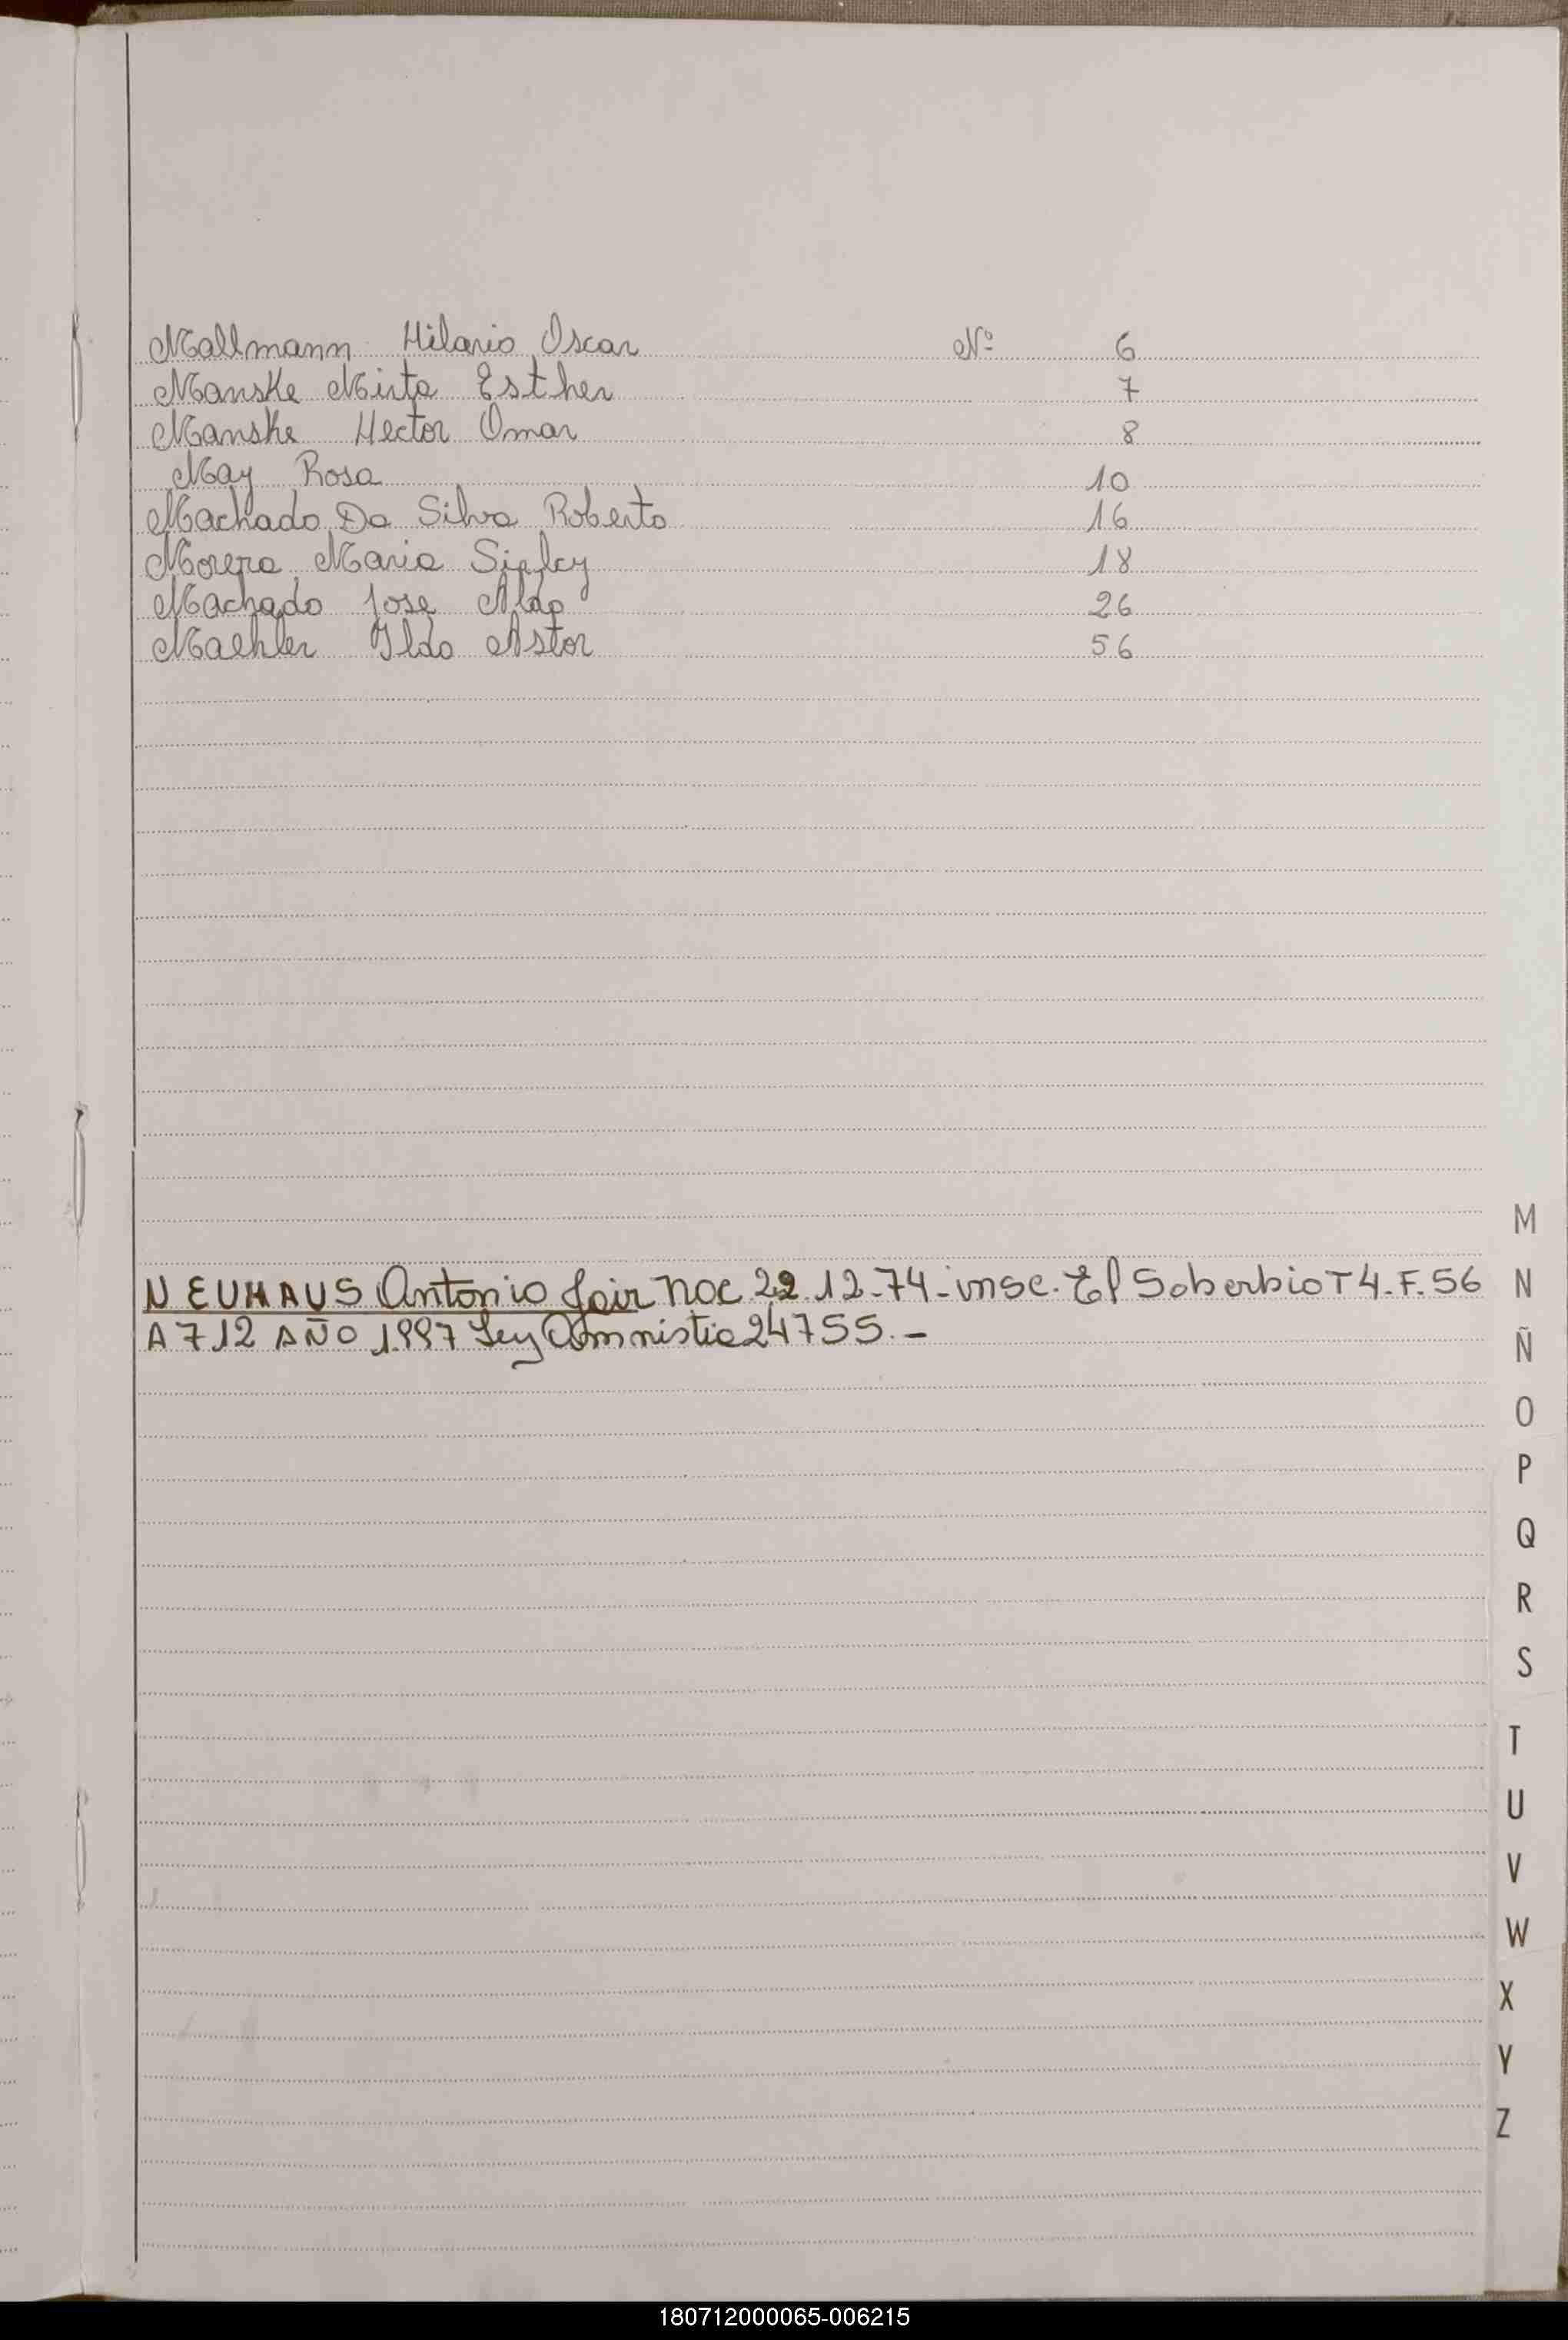 Mallmann Hilario Oscar Nº 6
Manske Mirta Esther 7
Manske Hector Omar 8
May Rosa 10
Machado Da Silva Roberto 16
Morera Maria 18
Machado Jose Aldo 26
Maehler Ildo Astor 56
NEUHAUS Antonio Jair Nac 22.12-74-insc. El Soberbio T 4.F.56
A 712 AÑO 1.997 Ley Amnistia 24755.-
M
N
Ñ
O
P
Q
R
S
T
U
V
W
X
Y
Z
180712000065-006215